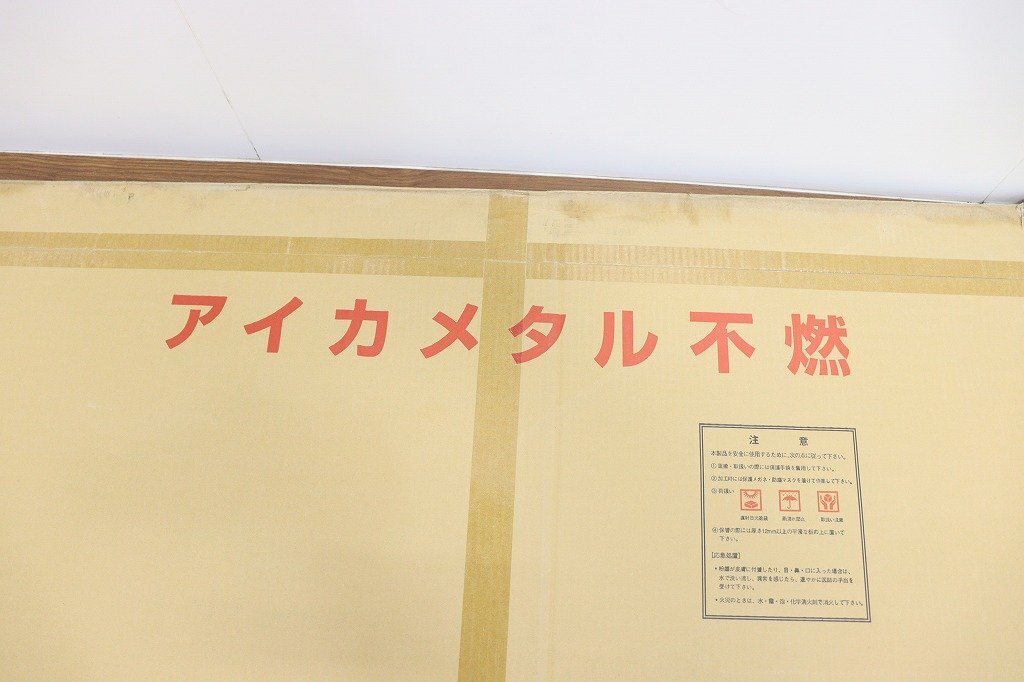 アイカメタル不燃
注意
本製品を安全に使用するために、次の点に従って下さい。
①運搬・取扱いの際には保護手袋を着用して下さい。
②加工時には保護メガネ・防塵マスクを着けて作業して下さい。
③荷扱い
直射日光遮蔽 水濡れ防止 取扱い注意
④保管の際には厚さ12mm以上の平滑な板の上に置いて
下さい。
[応急処置]
・粉塵が皮膚に付着したり、目・鼻・口に入った場合は、
水で洗い流し、異常を感じたら、速やかに医師の手当を
受けて下さい。
・火災のときは、水・霧・泡・化学消火剤で消火して下さい。